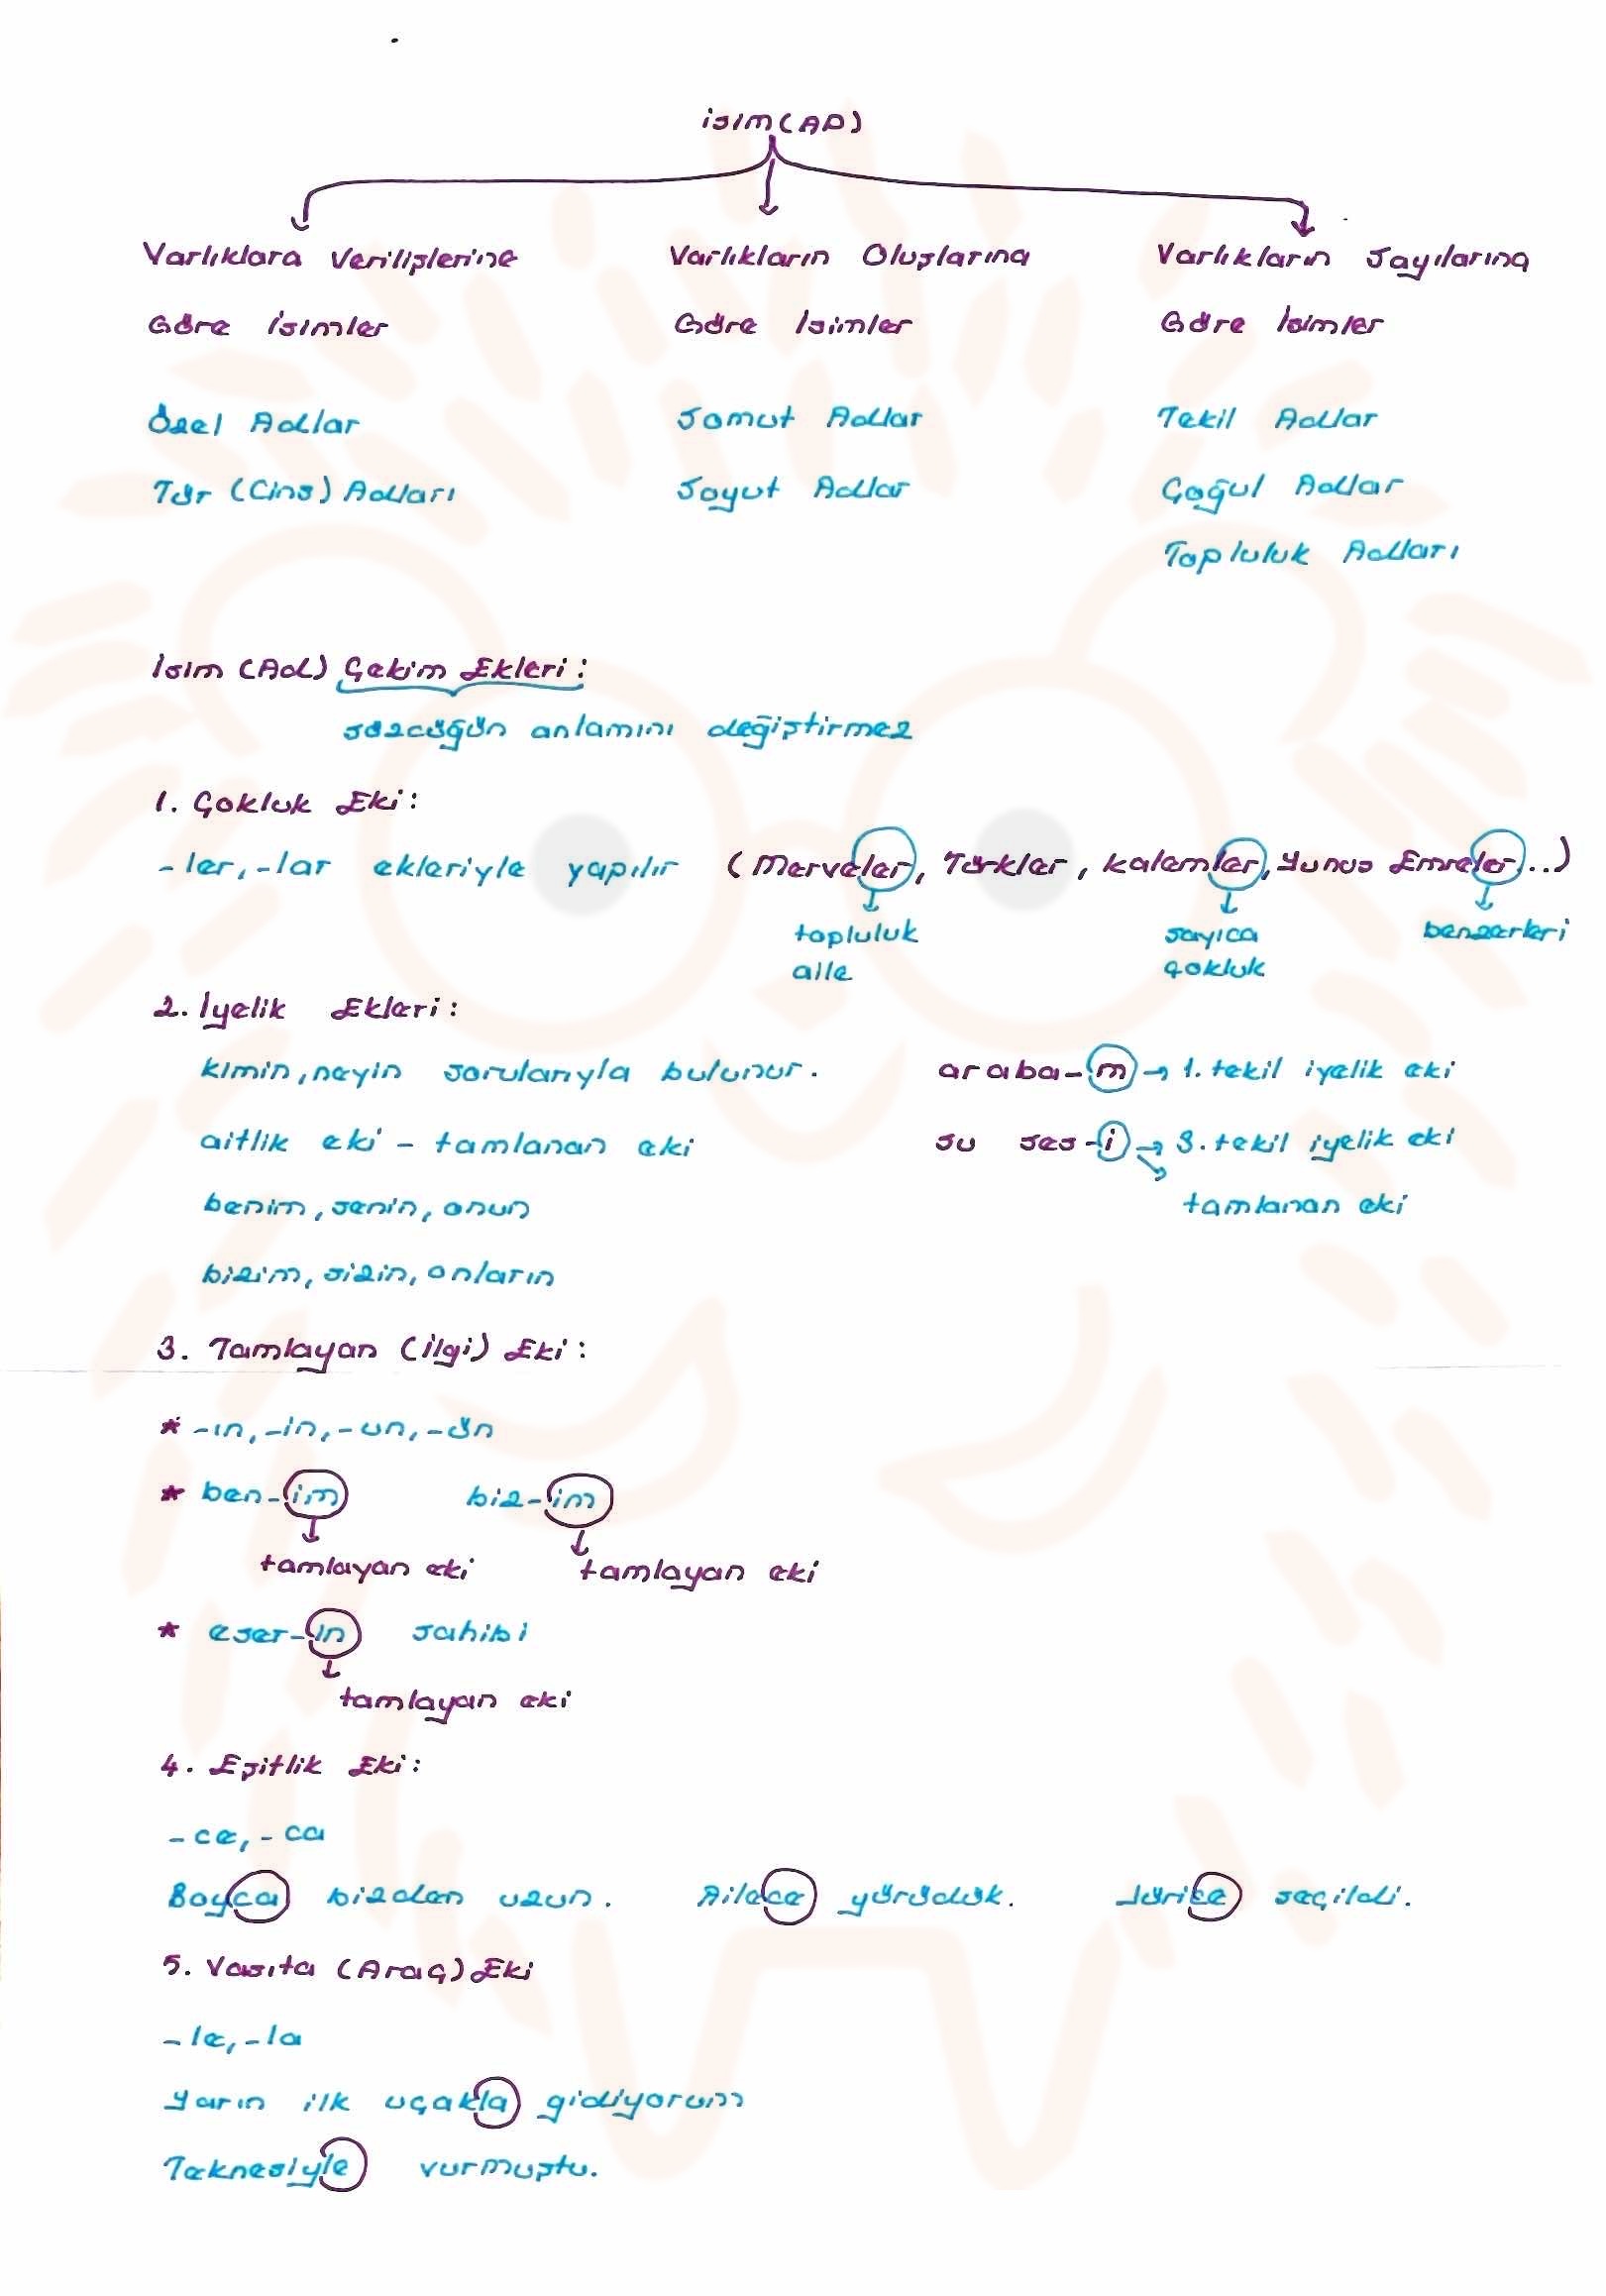 isim (AD)
Varlıklara Verilişlerine
Göre İsimler
Özel Adlar
Tür (Cins) Adları
Varlıkların Oluşlarına
Göre İsimler
Somut Adlar
Soyut Adlar
Varlıkların Sayılarına
Göre İsimler
Tekil Adlar
Çoğul Adlar
Topluluk Adları
İsim (Ad) Çekim Ekleri:
sözcüğün anlamını değiştirmez
1. Çokluk Eki:
-ler, -lar ekleriyle yapılır (Merveler, Türkler, kalemler, Yunus Emreler...)
topluluk
aile
sayıca
çokluk
benzerleri
2. İyelik Ekleri:
kimin, neyin sorularıyla bulunur.
aitlik eki - tamlanan eki
benim, senin, onun
bizim, sizin, onların
araba-m → 1. tekil iyelik eki
su ses-i → 3. tekil iyelik eki
tamlanan eki
3. Tamlayan (ilgi) Eki:
* -ın, -in, -un, -ün
* ben-im biz-im
tamlayan eki tamlayan eki
* eser-in sahibi
tamlayan eki
4. Eşitlik Eki:
-ce, -ca
Boyca bizden uzun. Ailece yürüdük. Jürice seçildi.
5. Vasıta (Araç) Eki
-le, -la
Yarın ilk uçakla gidiyorum
Teknesiyle vurmuştu.